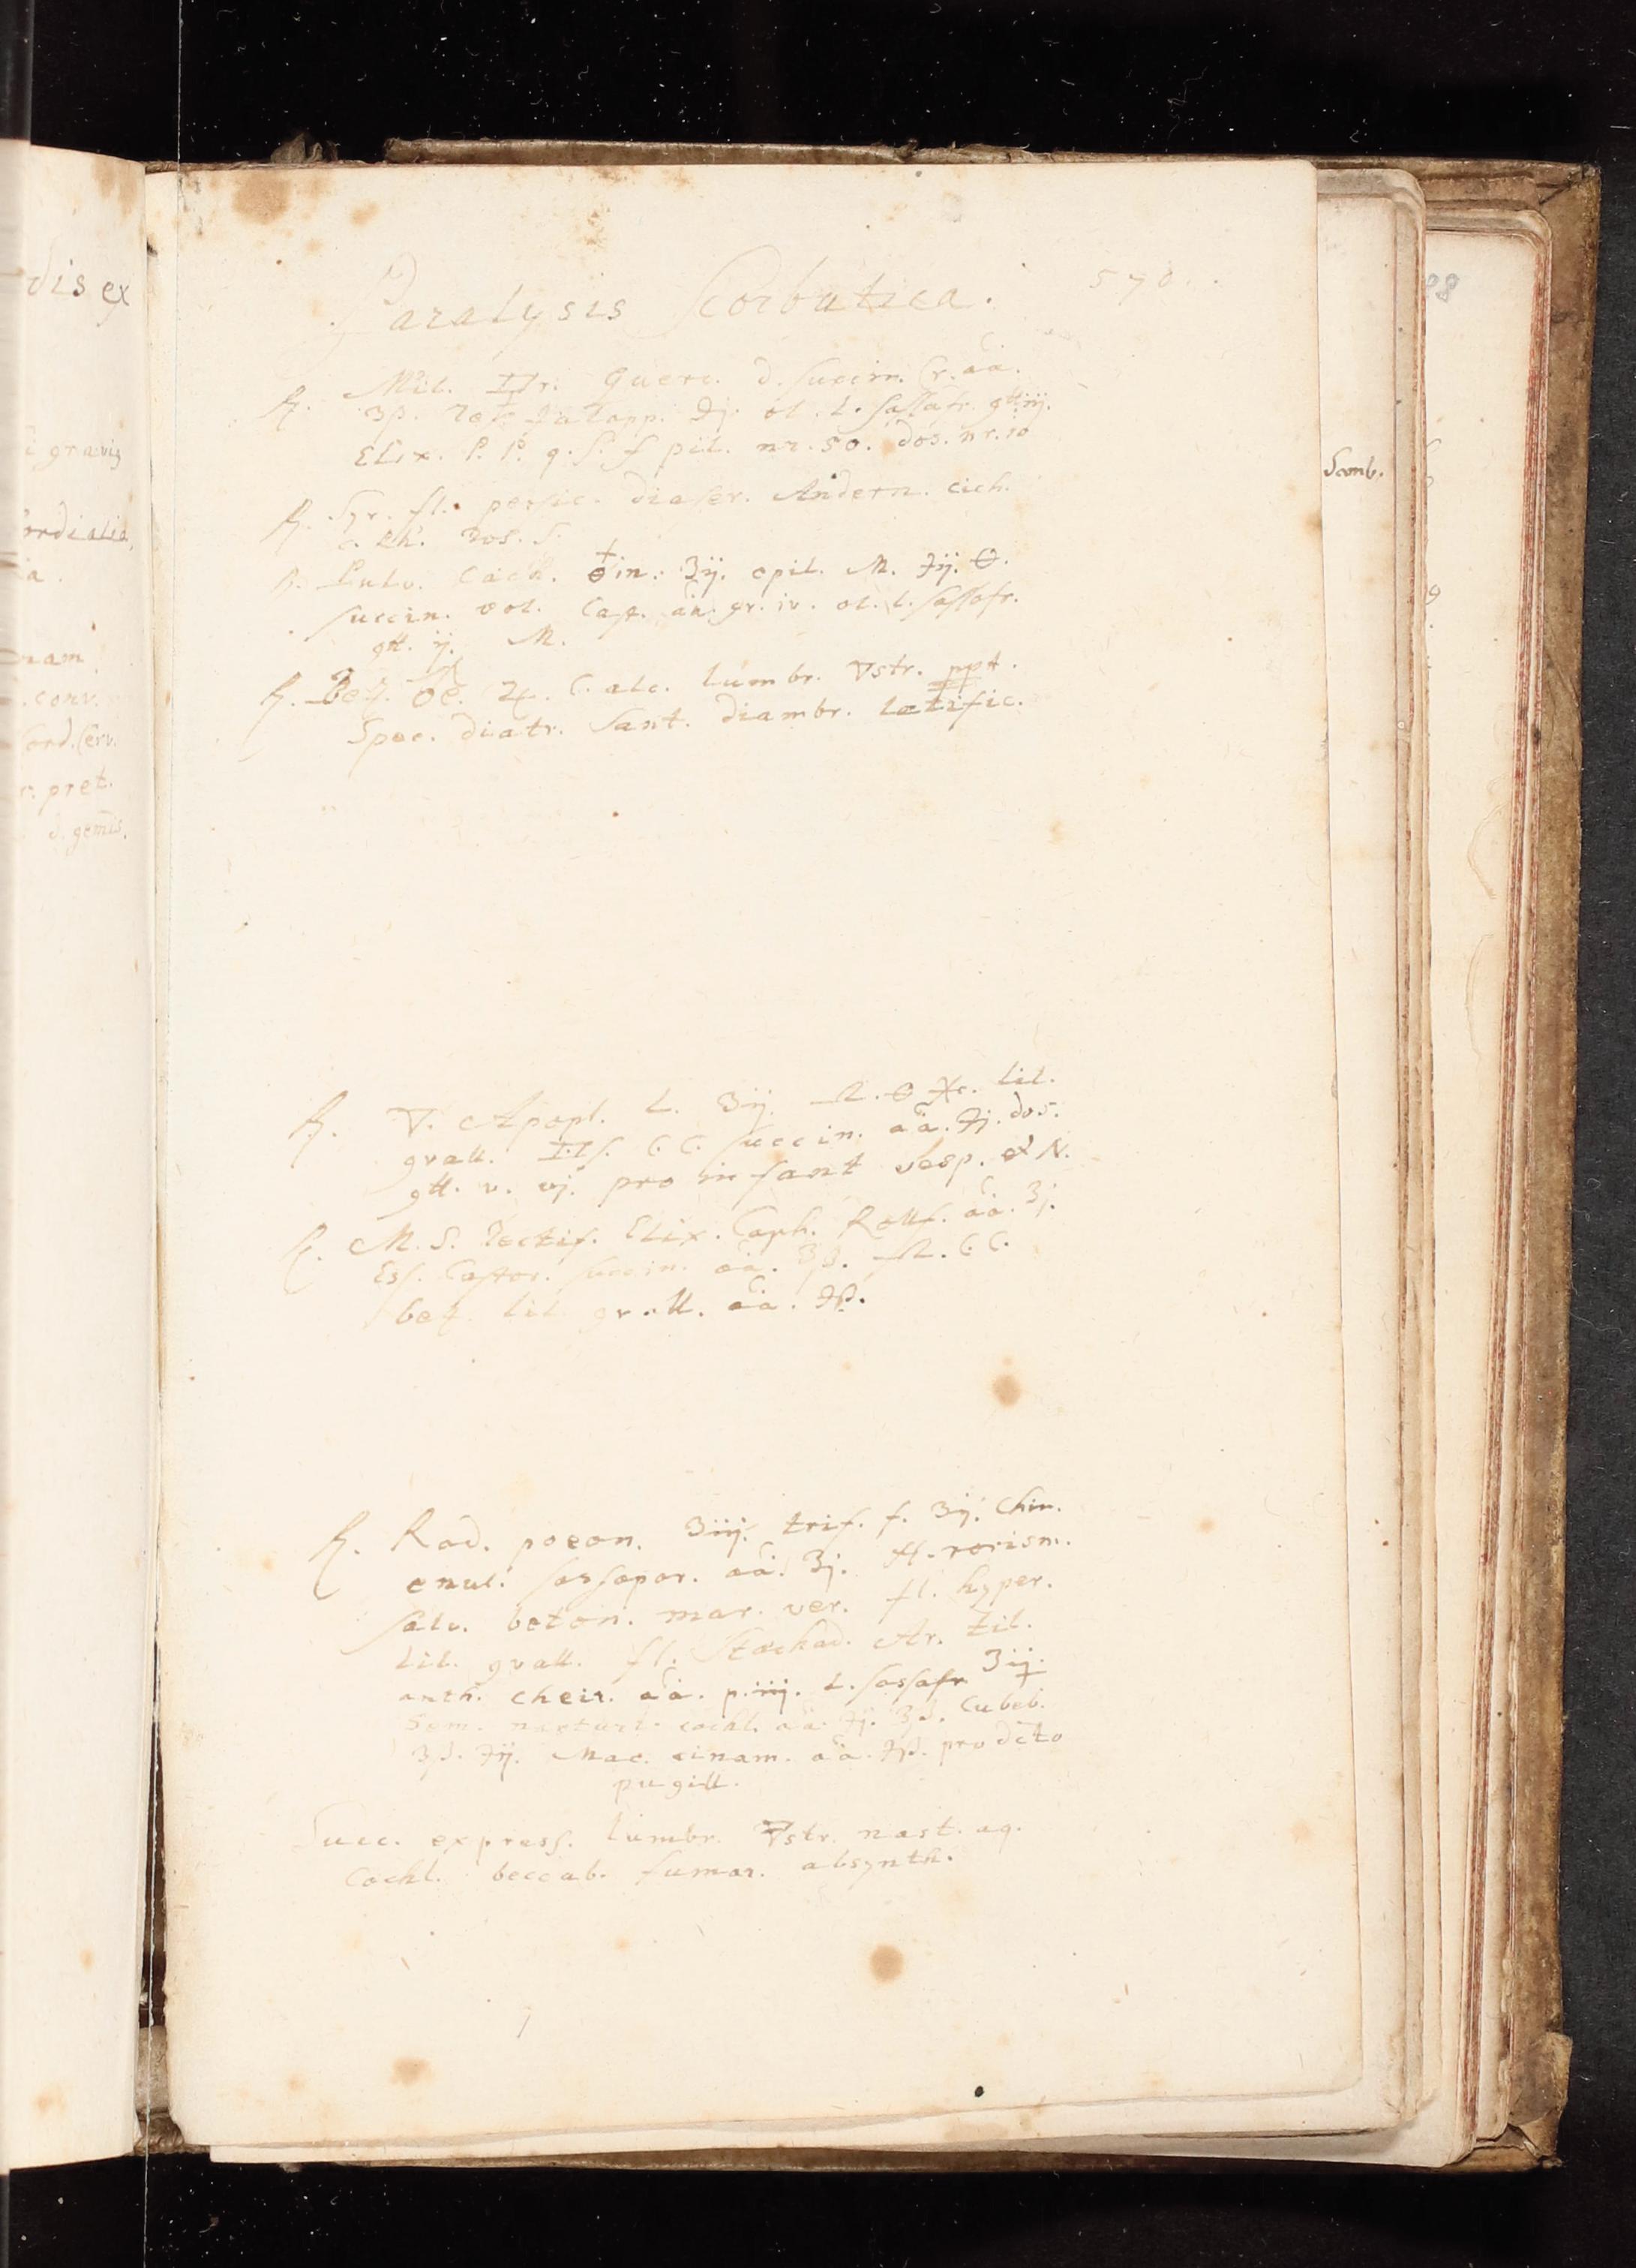 dis ex
gravis
ordialia,
ia.
nam
conv.
ord. Cerv.
r. pret.
d. gem̄is.
Paralysis Scorbutica. 570.
℞. Mil. Querc. d. succin. Cr. aā.
ʒß. Jalapp. ℈j. ol. l. sassafr. gtt iij.
Elix. P. P. q. s. f pil. nr. 50. dos. nr. 10
℞. Syr. fl. persic. diaser. Andern. cich.
c. Rh. ros. S.
℞. Pulv. Cach. in. ʒij. opil. M. ℈ij. 🜔.
succin. vol. Cast. an. gr. iv. ol. l. sassafr.
gtt. ij. M.
℞. Bez. ♃. C. alc. lumbr. 🜃str. ppt.
Spec. diatr. Sant. diambr. lætific.
℞. 🜄. Apopl. L. ʒij. lil.
gvall. C. C. succin. aā. ℈j. dos.
gtt. v. vj. pro infant vesp. et N.
℞. M. S. rectif. Elix. Caph. Rolf. aā. ʒj.
Ess. Castor. succin. aā. ʒß. C. C.
bez. lil gvall. aā. ℈ß.
℞. Rad. poeon. ʒiij. trif. f. ʒij. Chin.
enul. sassapar. aā. ʒj. rorism.
salv. beton. mar. ver. fl. hyper.
lil. gvall. fl. Stœchad. Ar. til.
anth. cheir. aā. p. iij. L. sassafr ʒij.
Sem. nasturt. cochl. aā. ℈ij. ʒß. Cubeb.
ʒß. ℈ij. Mac. cinam. aā. ℈ß. pro dcto
pugill.
Succ. express. lumbr. 🜃str. nast. aq.
Cochl. beccab. fumar. absynth.
Scomb.